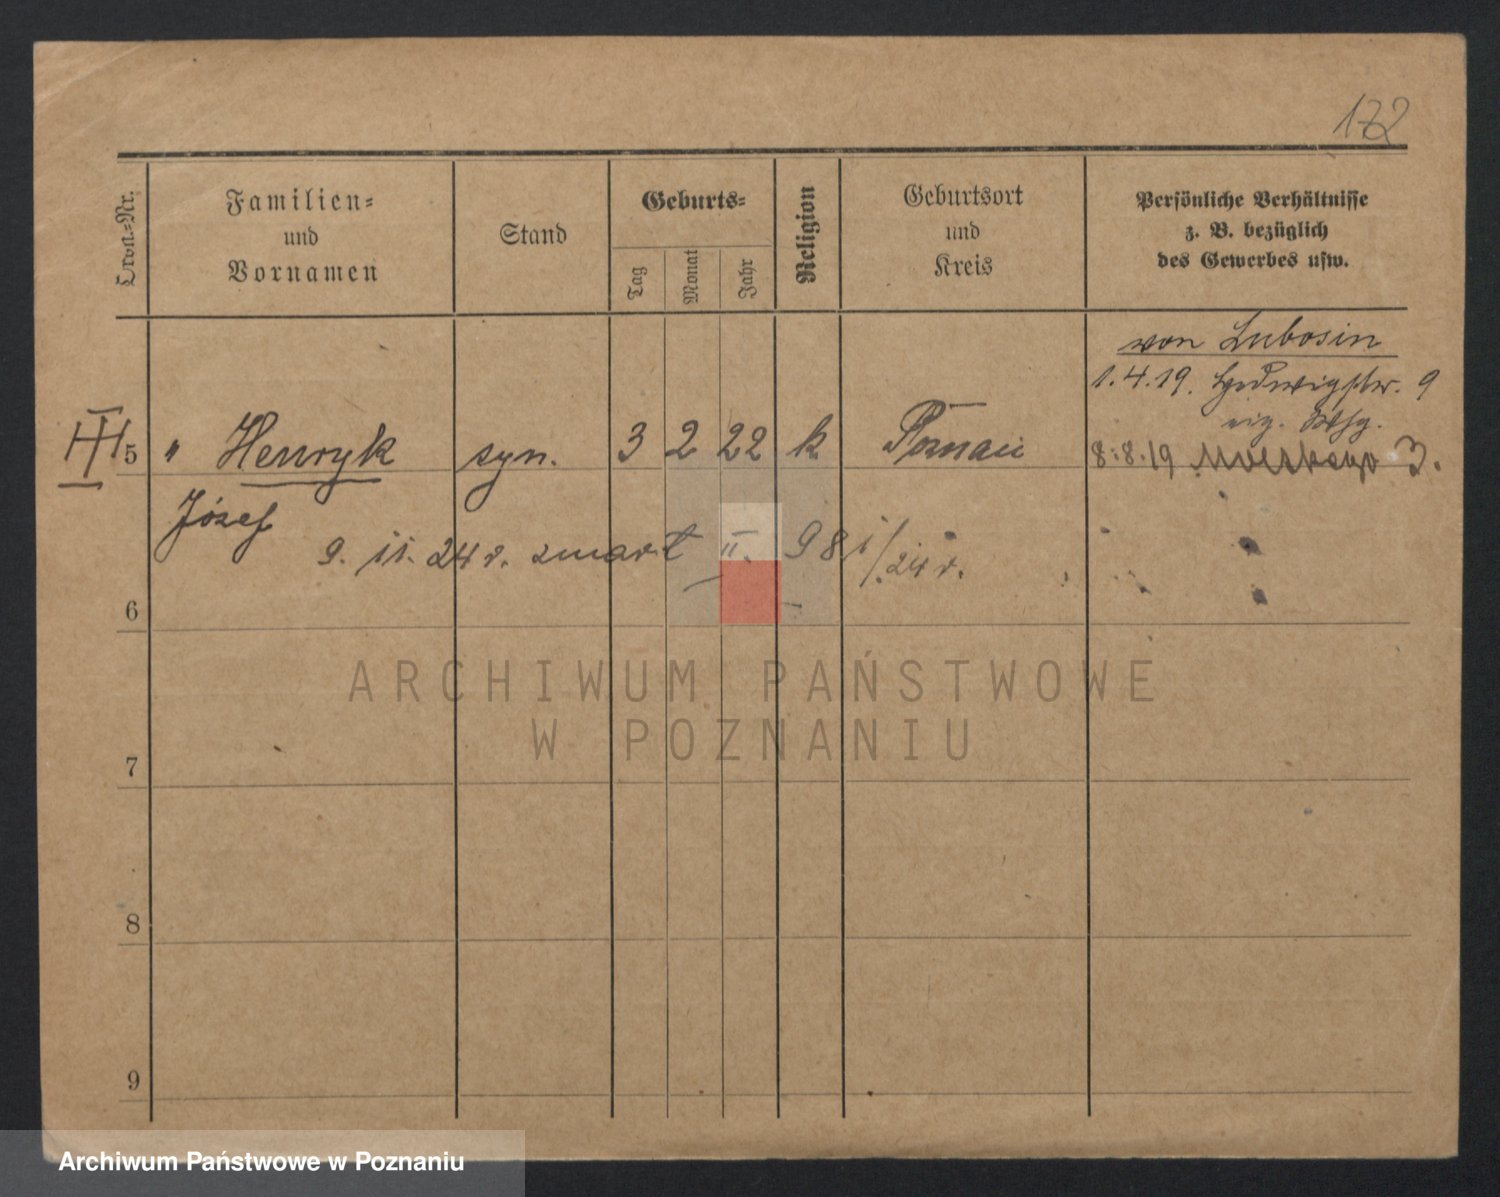 172
Ordn.-Nr.
Familien-
und
Vornamen
Stand
Geburts-
Tag
Monat
Jahr
Religion
Geburtsort
und
Kreis
Persönliche Verhältnisse
z. B. bezüglich
des Gewerbes usw.
von Lubosin
1.4.19. Hedwigstr. 9
5 " Henryk syn. 3 2 22 k Poznań
8.8.19 3.
Józef
9. 11. 24 r. zmarł 98 /24 r.
6
7
8
9
ARCHIWUM PAŃSTWOWE
W POZNANIU
Archiwum Państwowe w Poznaniu